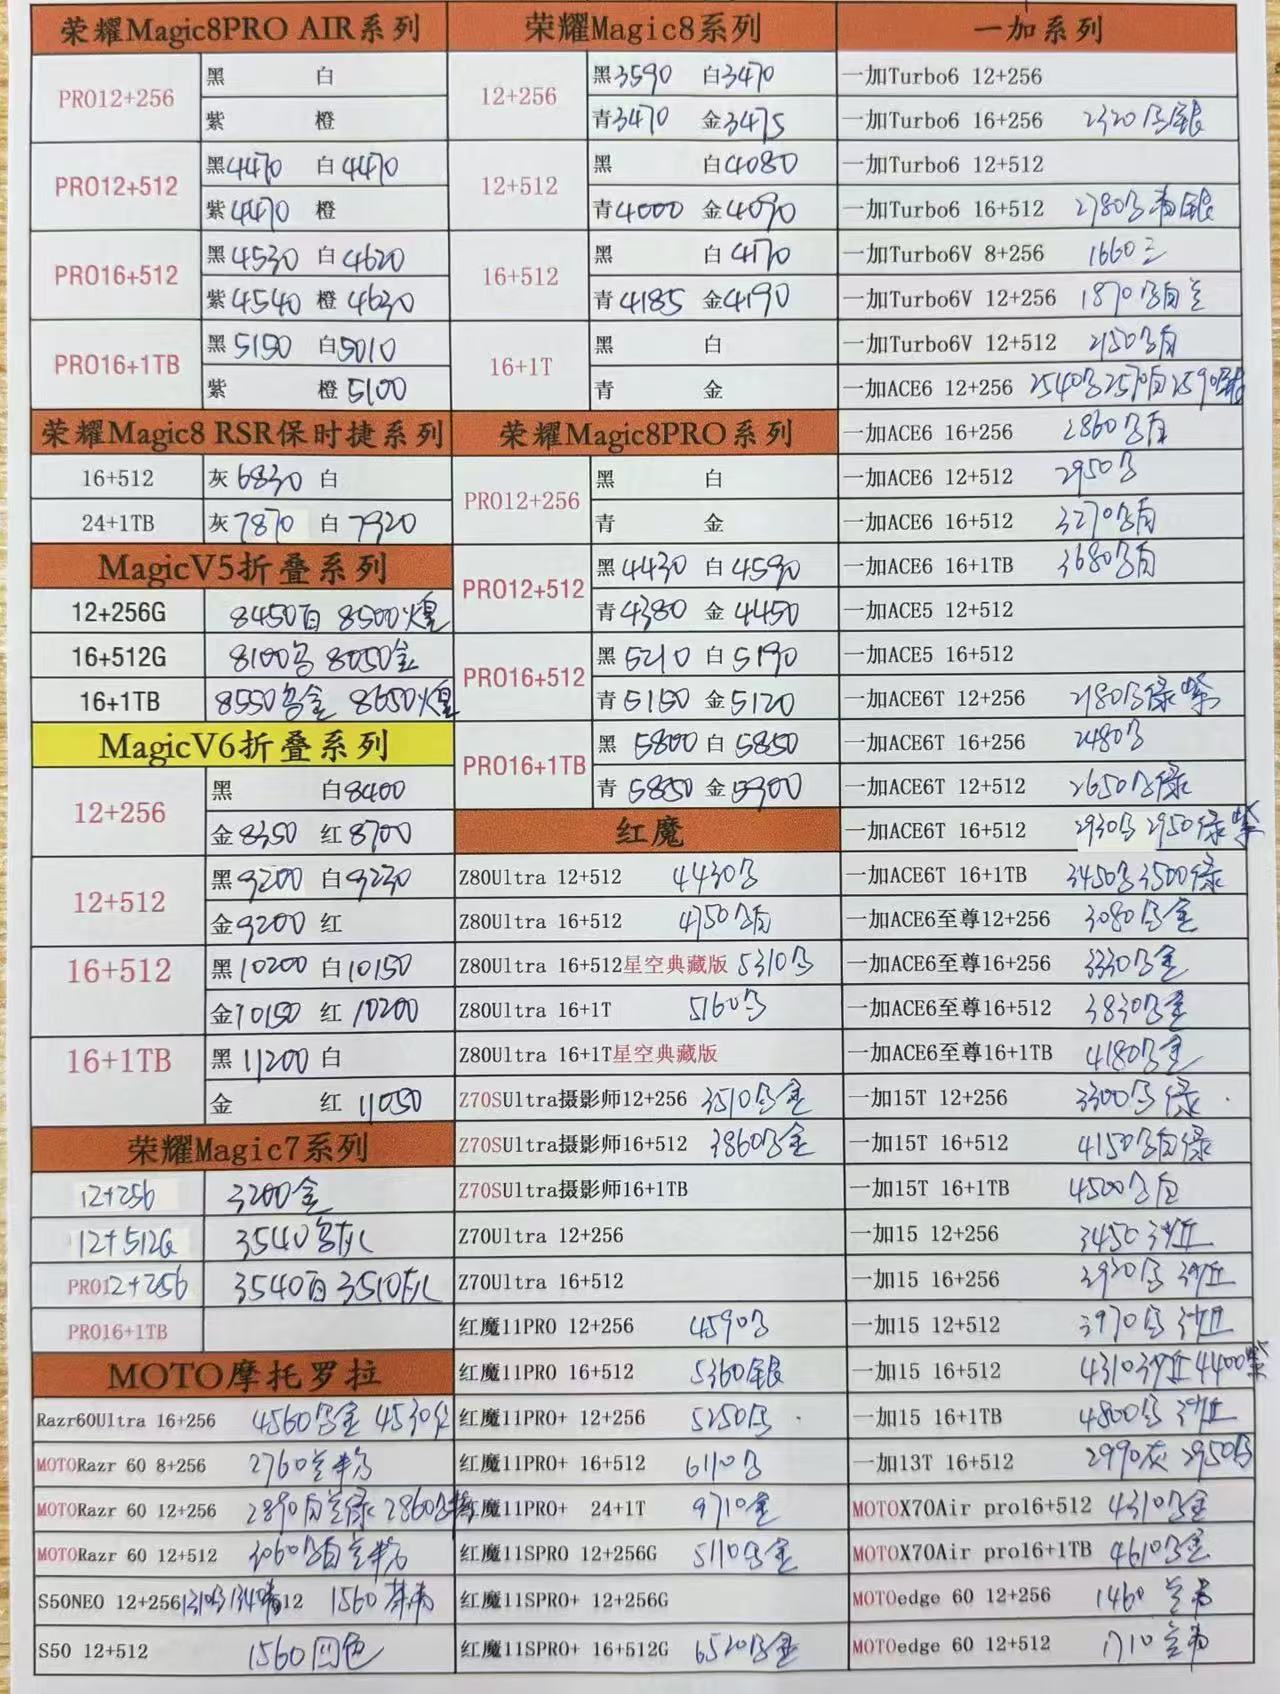 荣耀Magic8PRO AIR系列
PRO12+256
黑 白
紫 橙
PRO12+512
黑4470 白4470
紫4470 橙
PRO16+512
黑4530 白4620
紫4540 橙4630
PRO16+1TB
黑5150 白5010
紫 橙5100
荣耀Magic8 RSR保时捷系列
16+512 灰6830 白
24+1TB 灰7870 白7920
MagicV5折叠系列
12+256G 8450白 8500煌
16+512G 8100乌 8050金
16+1TB 8550乌金 8650煌
MagicV6折叠系列
12+256
黑 白8400
金8350 红8700
12+512
黑9200 白9230
金9200 红
16+512
黑10200 白10150
金10150 红10200
16+1TB
黑11200 白
金 红11050
荣耀Magic7系列
12+256 3200金
12+512G 3540
PRO12+256 3540白 3510
PRO16+1TB
MOTO摩托罗拉
Razr60Ultra 16+256 4560乌金 4530
MOTORazr 60 8+256 2760兰
MOTORazr 60 12+256 2890白兰绿 2860
MOTORazr 60 12+512 3060乌白兰
S50NEO 12+256 1310 1340 12 1560
S50 12+512 1560四色
荣耀Magic8系列
12+256
黑3590 白3470
青3470 金3475
12+512
黑 白4080
青4000 金4090
16+512
黑 白4170
青4185 金4190
16+1T
黑 白
青 金
荣耀Magic8PRO系列
PRO12+256
黑 白
青 金
PRO12+512
黑4430 白4590
青4380 金4450
PRO16+512
黑5210 白5190
青5150 金5120
PRO16+1TB
黑5800 白5850
青5850 金5900
红魔
Z80Ultra 12+512 4430乌
Z80Ultra 16+512 4750乌白
Z80Ultra 16+512星空典藏版 5310乌
Z80Ultra 16+1T 5160乌
Z80Ultra 16+1T星空典藏版
Z70SUltra摄影师12+256 3510乌金
Z70SUltra摄影师16+512 3860乌金
Z70SUltra摄影师16+1TB
Z70Ultra 12+256
Z70Ultra 16+512
红魔11PRO 12+256 4590乌
红魔11PRO 16+512 5360银
红魔11PRO+ 12+256 5250乌
红魔11PRO+ 16+512 6110乌
红魔11PRO+ 24+1T 9710金
红魔11SPRO 12+256G 5110乌金
红魔11SPRO+ 12+256G
红魔11SPRO+ 16+512G 6520乌金
一加系列
一加Turbo6 12+256
一加Turbo6 16+256 2320乌银
一加Turbo6 12+512
一加Turbo6 16+512 2780乌青银
一加Turbo6V 8+256 1660三
一加Turbo6V 12+256 1870乌白兰
一加Turbo6V 12+512 2150乌白
一加ACE6 12+256 2540乌2570白2590银
一加ACE6 16+256 2860乌白
一加ACE6 12+512 2950乌
一加ACE6 16+512 3270乌白
一加ACE6 16+1TB 3680乌白
一加ACE5 12+512
一加ACE5 16+512
一加ACE6T 12+256 2180乌绿紫
一加ACE6T 16+256 2480乌
一加ACE6T 12+512 2650乌绿
一加ACE6T 16+512 2930乌 2950绿紫
一加ACE6T 16+1TB 3450乌3500绿
一加ACE6至尊12+256 3080乌金
一加ACE6至尊16+256 3330乌金
一加ACE6至尊16+512 3830乌金
一加ACE6至尊16+1TB 4180乌金
一加15T 12+256 3300乌绿
一加15T 16+512 4150乌白绿
一加15T 16+1TB 4500乌白
一加15 12+256 3450沙丘
一加15 16+256 3920乌沙丘
一加15 12+512 3970乌沙丘
一加15 16+512 4310沙丘4400紫
一加15 16+1TB 4800乌沙丘
一加13T 16+512 2990灰 2950乌
MOTOX70Air pro16+512 4310乌金
MOTOX70Air pro16+1TB 4610乌金
MOTOedge 60 12+256 1460兰青
MOTOedge 60 12+512 1710兰青